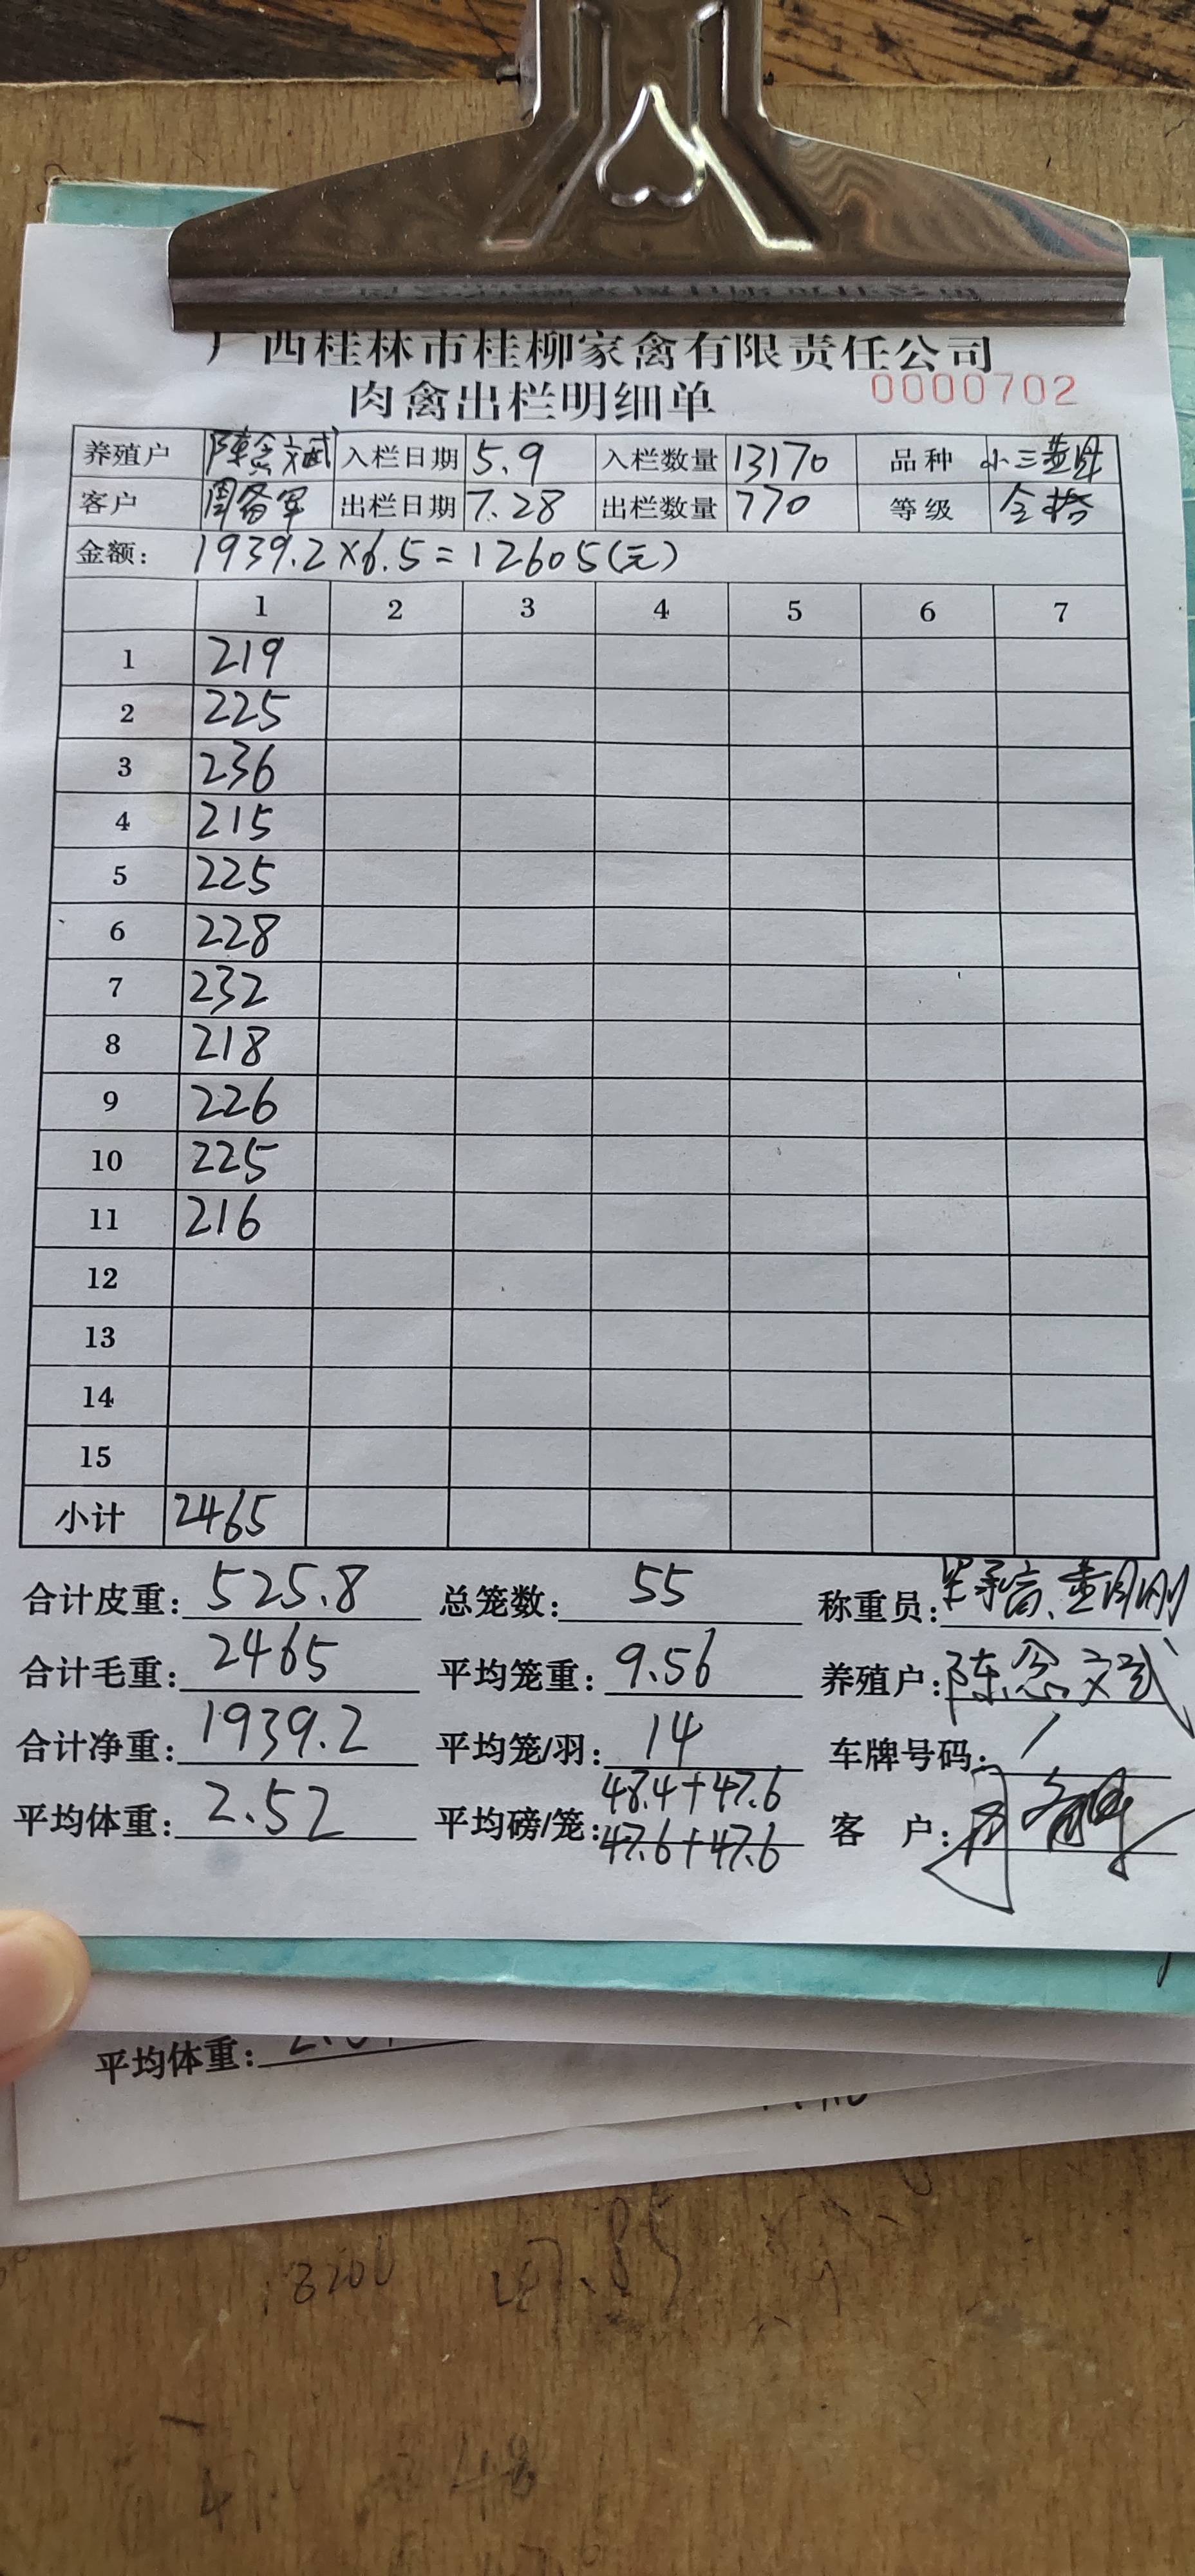 广西桂林市桂柳家禽有限责任公司
肉禽出栏明细单 0000702
养殖户 陈念文武 入栏日期 5.9 入栏数量 13170 品种 小三黄
客户 周备军 出栏日期 7.28 出栏数量 770 等级 合格
金额: 1939.2×6.5=12605(元)
1 2 3 4 5 6 7
1 219
2 225
3 236
4 215
5 225
6 228
7 232
8 218
9 226
10 225
11 216
12
13
14
15
小计 2465
合计皮重: 525.8 总笼数: 55 称重员:
合计毛重: 2465 平均笼重: 9.56 养殖户: 陈念文武
合计净重: 1939.2 平均笼/羽: 14 车牌号码: /
48.4+47.6
平均体重: 2.52 平均磅/笼: 47.6+47.6 客 户:
平均体重: